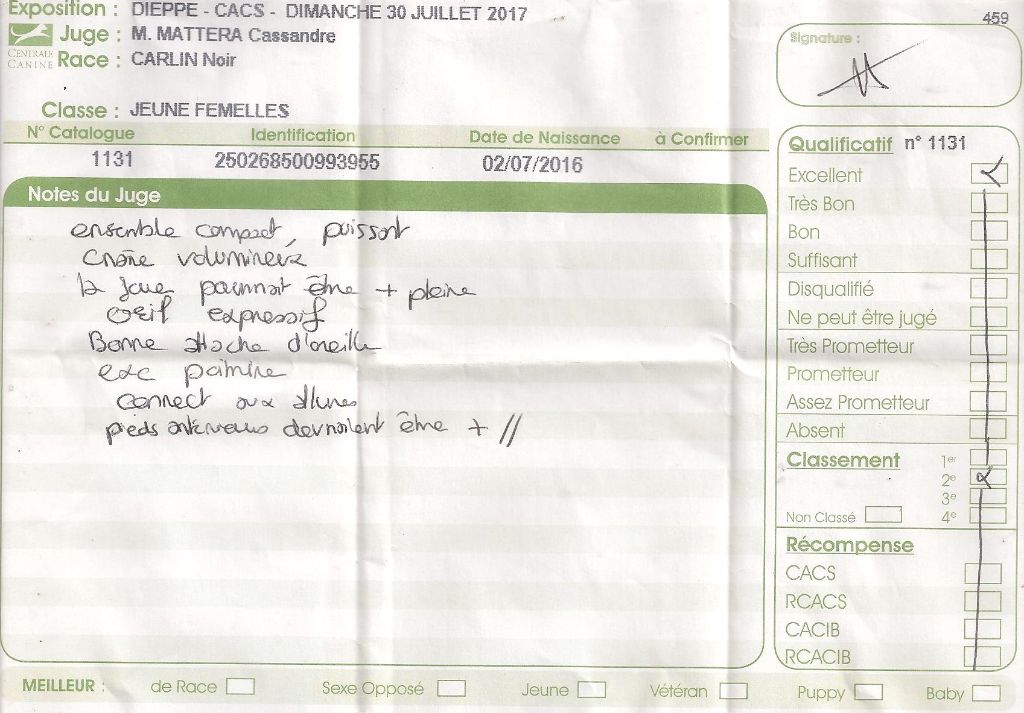 Exposition : DIEPPE - CACS - DIMANCHE 30 JUILLET 2017
459
Juge : M. MATTERA Cassandre
CENTRALE CANINE
Race : CARLIN Noir
Signature :
Classe : JEUNE FEMELLES
N° Catalogue Identification Date de Naissance à Confirmer
1131 250268500993955 02/07/2016
Notes du Juge
ensemble compact, puissant
Crâne volumineux
la joue pourrait être + pleine
oeil expressif
Bonne attache d'oreille
exc poitrine
correct aux allures
pieds antérieurs devraient être + //
Qualificatif n° 1131
Excellent
Très Bon
Bon
Suffisant
Disqualifié
Ne peut être jugé
Très Prometteur
Prometteur
Assez Prometteur
Absent
Classement 1er
2e
3e
Non Classé 4e
Récompense
CACS
RCACS
CACIB
RCACIB
MEILLEUR : de Race Sexe Opposé Jeune Vétéran Puppy Baby